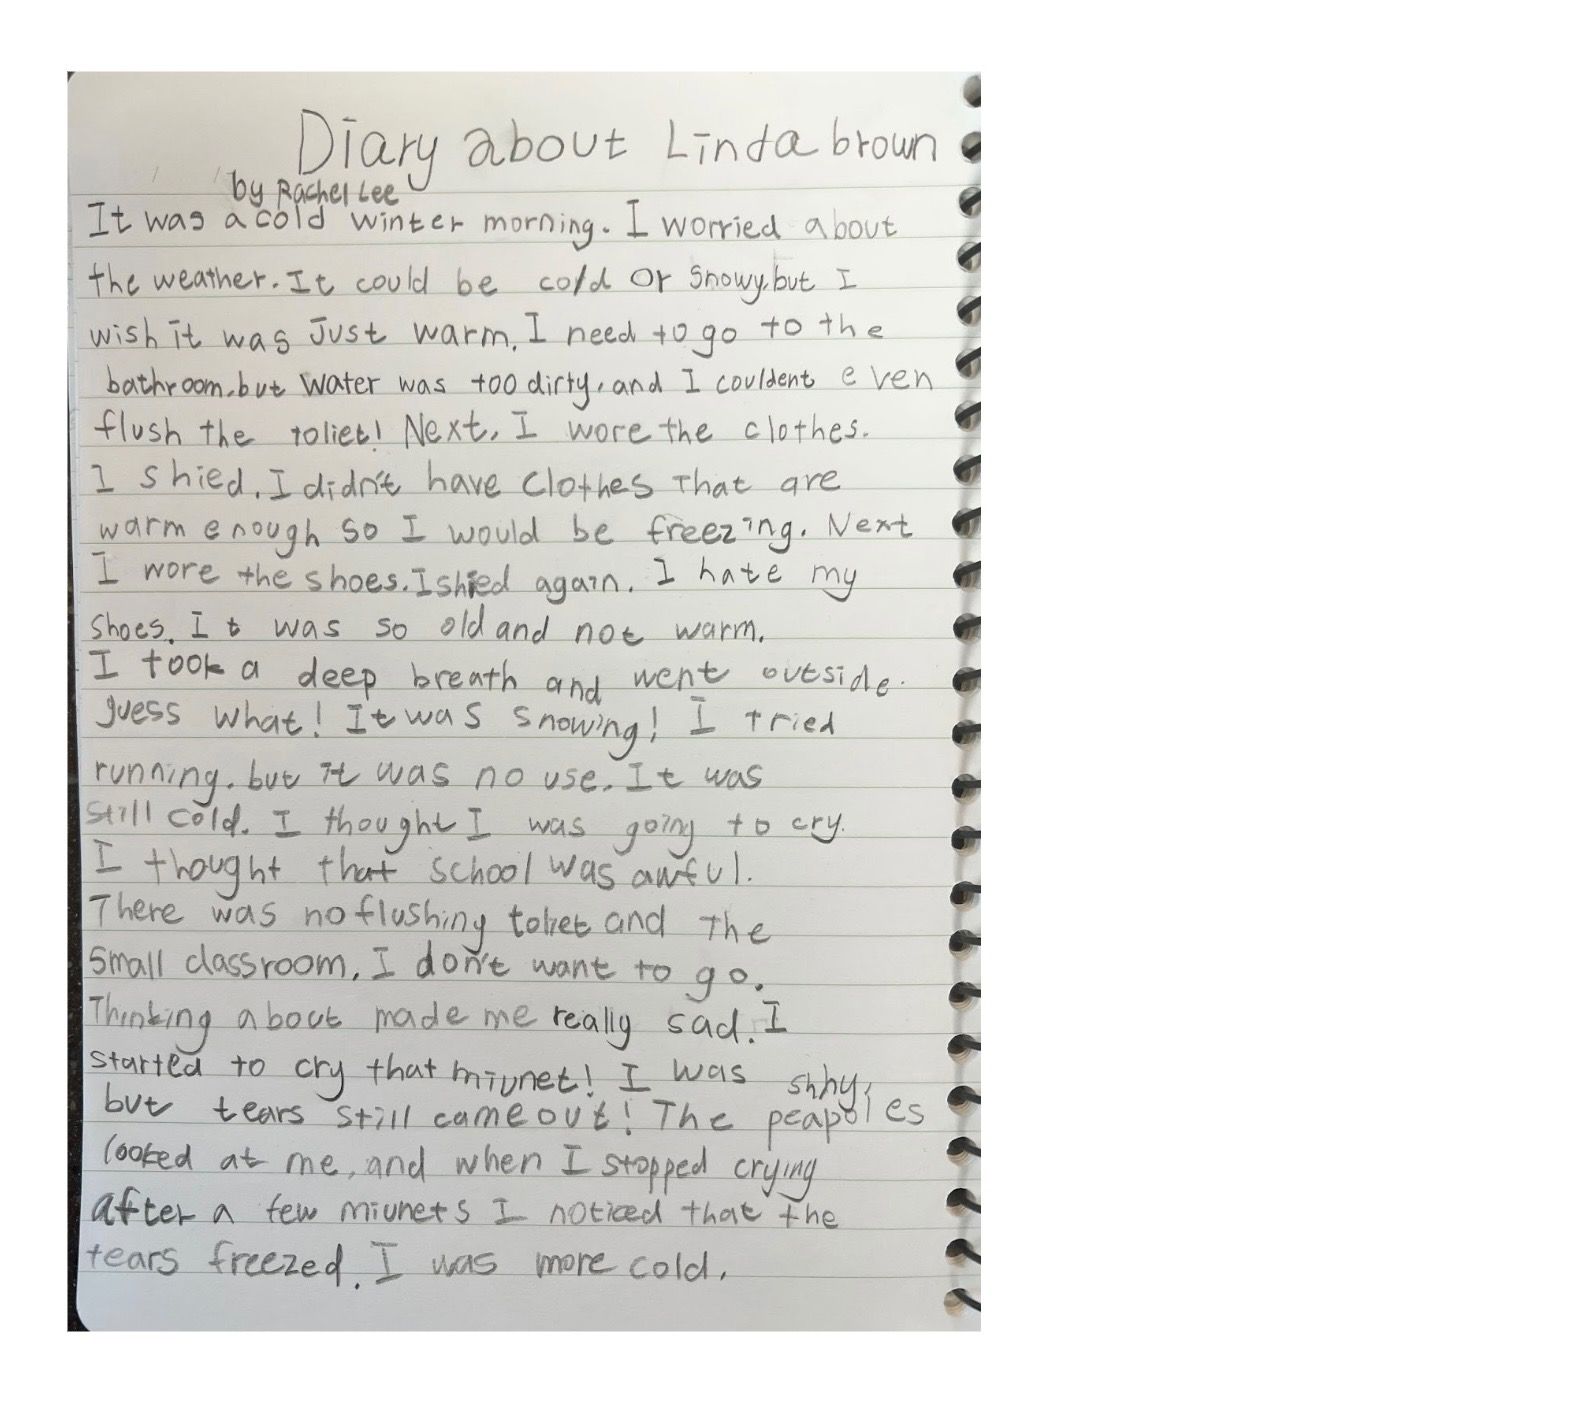 Diary about Linda brown
by Rachel Lee
It was a cold winter morning. I worried about
the weather. It could be cold or snowy, but I
wish it was Just warm. I need to go to the
bathroom, but water was too dirty, and I couldent even
flush the toliet! Next, I wore the clothes.
I shied. I didn't have clothes that are
warm enough so I would be freezing. Next
I wore the shoes. I shied again. I hate my
shoes. It was so old and not warm.
I took a deep breath and went outside.
guess what! It was snowing! I tried
running, but it was no use. It was
still cold. I thought I was going to cry.
I thought that school was awful.
There was no flushing toliet and the
small classroom. I don't want to go.
Thinking about made me really sad. I
started to cry that miunet! I was shhy,
but tears still came out! The peapoles
looked at me, and when I stopped crying
after a few miunets I noticed that the
tears freezed. I was more cold.